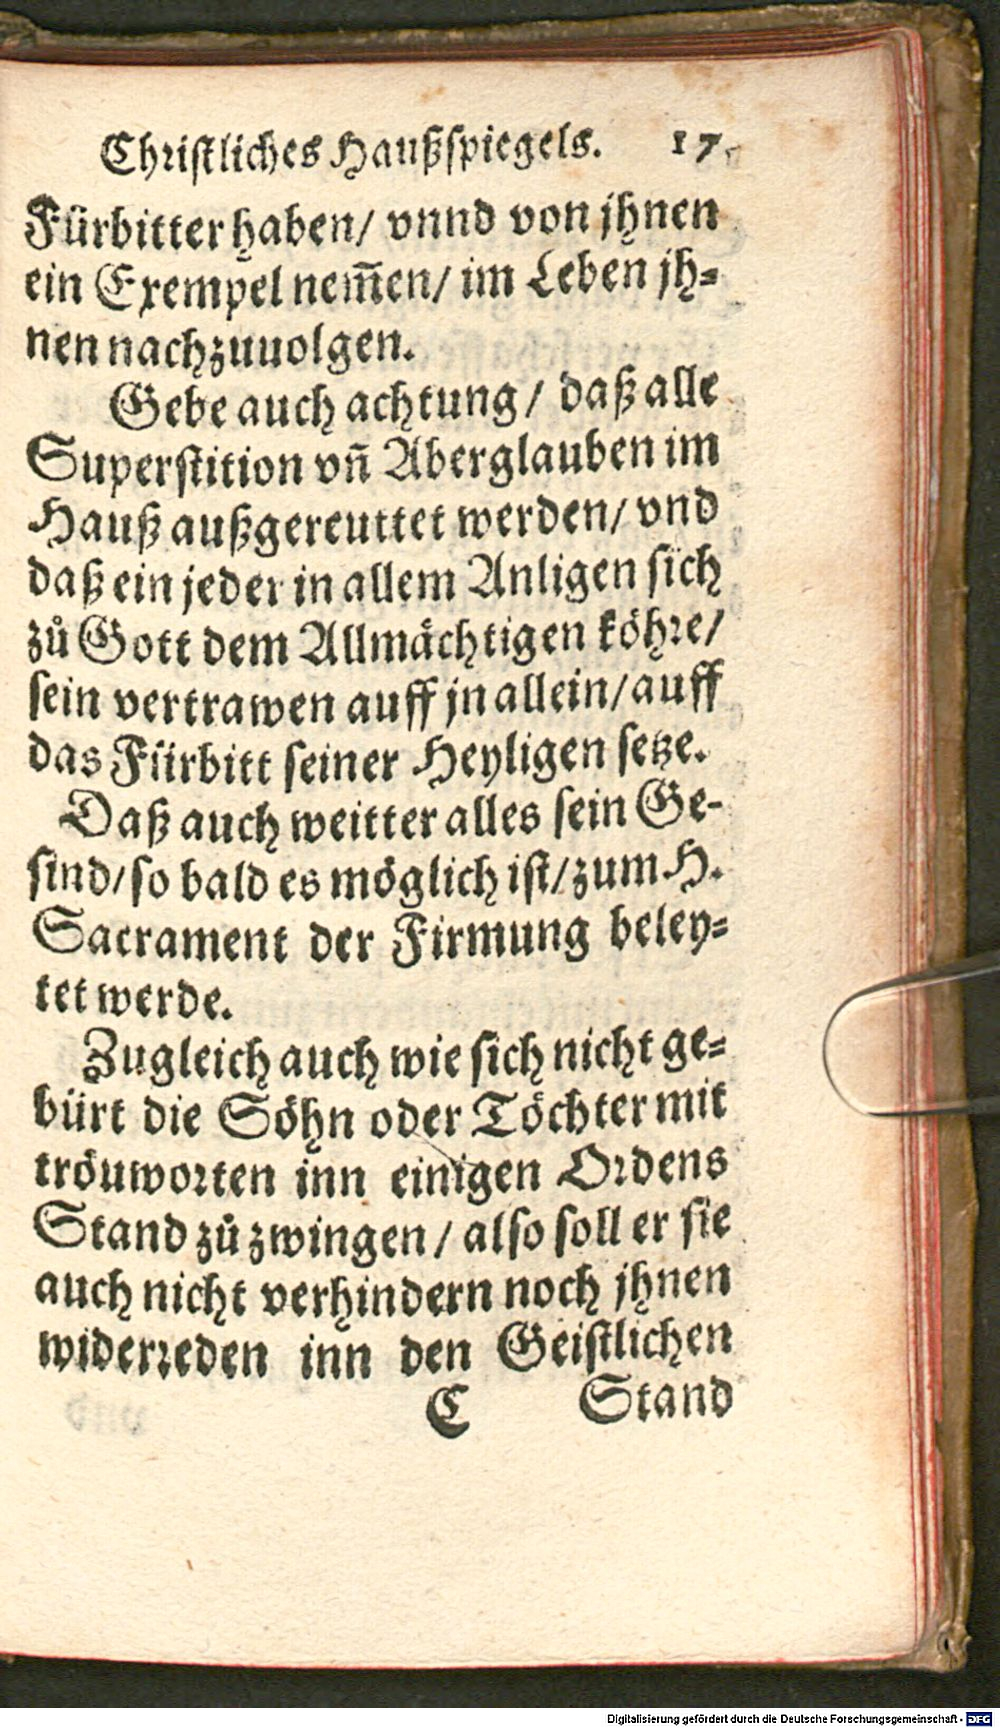 Christliches Haußspiegels. 17.
Fürbitter haben/ vnnd von jhnen
ein Exempel nem̄en/ im Leben jh⸗
nen nachzuuolgen.
Gebe auch achtung/ daß alle
Superstition vn̄ Aberglauben im
Hauß außgereuttet werden/ vnd
daß ein jeder in allem Anligen sich
zů Gott dem Allmächtigen köhre/
sein vertrawen auff jn allein/ auff
das Fürbitt seiner Heyligen setze.
Daß auch weitter alles sein Ge-
sind/ so bald es möglich ist/ zum H.
Sacrament der Firmung beley⸗
tet werde.
Zugleich auch wie sich nicht ge⸗
bürt die Söhn oder Töchter mit
tröuworten inn einigen Ordens
Stand zů zwingen/ also soll er sie
auch nicht verhindern noch jhnen
widerreden inn den Geistlichen
C Stand
Digitalisierung gefördert durch die Deutsche Forschungsgemeinschaft - DFG